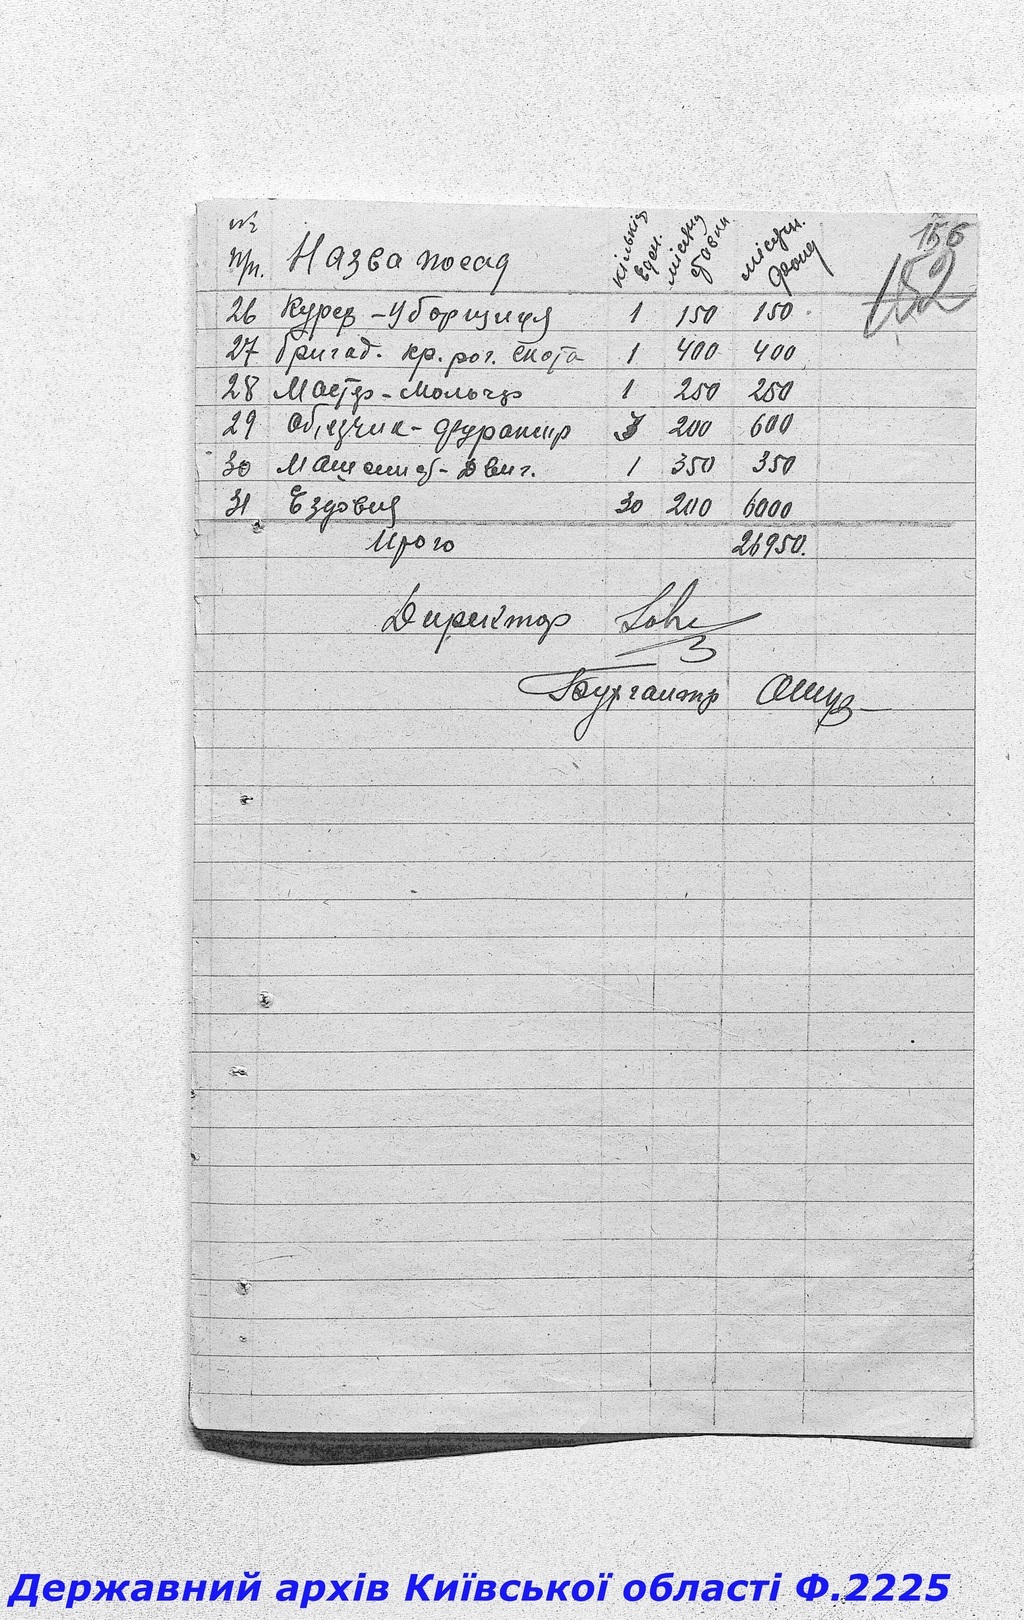 156
152
№ п/п. Назва посад кільків. един. місячн ставки місячн. фонд
26 Курер - Уборщиця 1 150 150
27 Бригад. кр. рог. скота 1 400 400
28 Мастер - мольчар 1 250 250
29 Об'їзчик - фуражир 3 200 600
30 Машиніст - Двиг. 1 350 350
31 Ездовия 30 200 6000
Итого 26950.
Директор
Бухгалтер
Державний архів Київської області Ф.2225